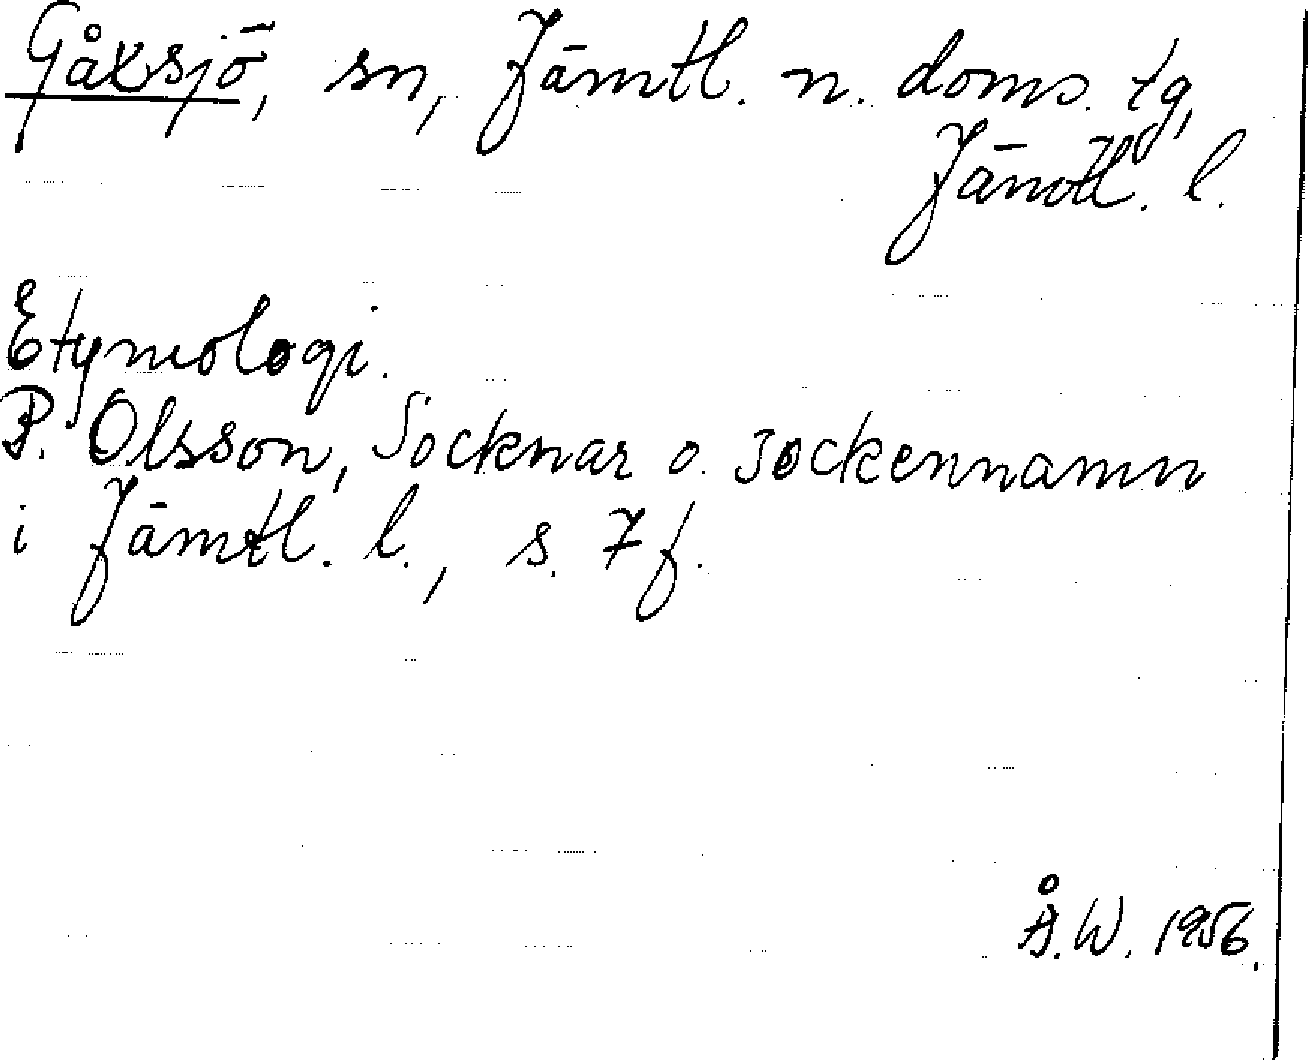 Gåxsjö, sn, Jämtl. n. doms. tg,
Jämtl. l.
Etymologi.
P. Olsson, Socknar o. sockennamn
i Jämtl. l., s. 7 f.
Å. W. 1956.